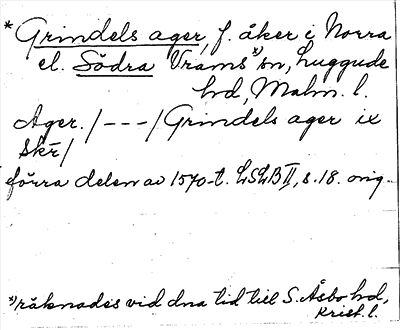 * Grindels ager, f. åker i Norra
el. Södra Vrams *) sn, Luggude
hd, Malm. l.
Ager. / --- / Grindels ager ix
skr/
förra delen av 1570-t. LSLB II, s. 18. orig.
*) räknades vid dna tid till S. Åsbo hd,
Krist. l.